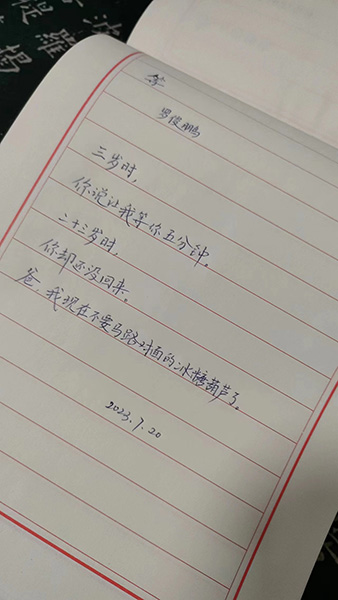 等
罗俊鹏
三岁时，
你说让我等你五分钟。
二十三岁时，
你却还没回来。
爸，我现在不要马路对面的冰糖葫芦了。
2023.7.20